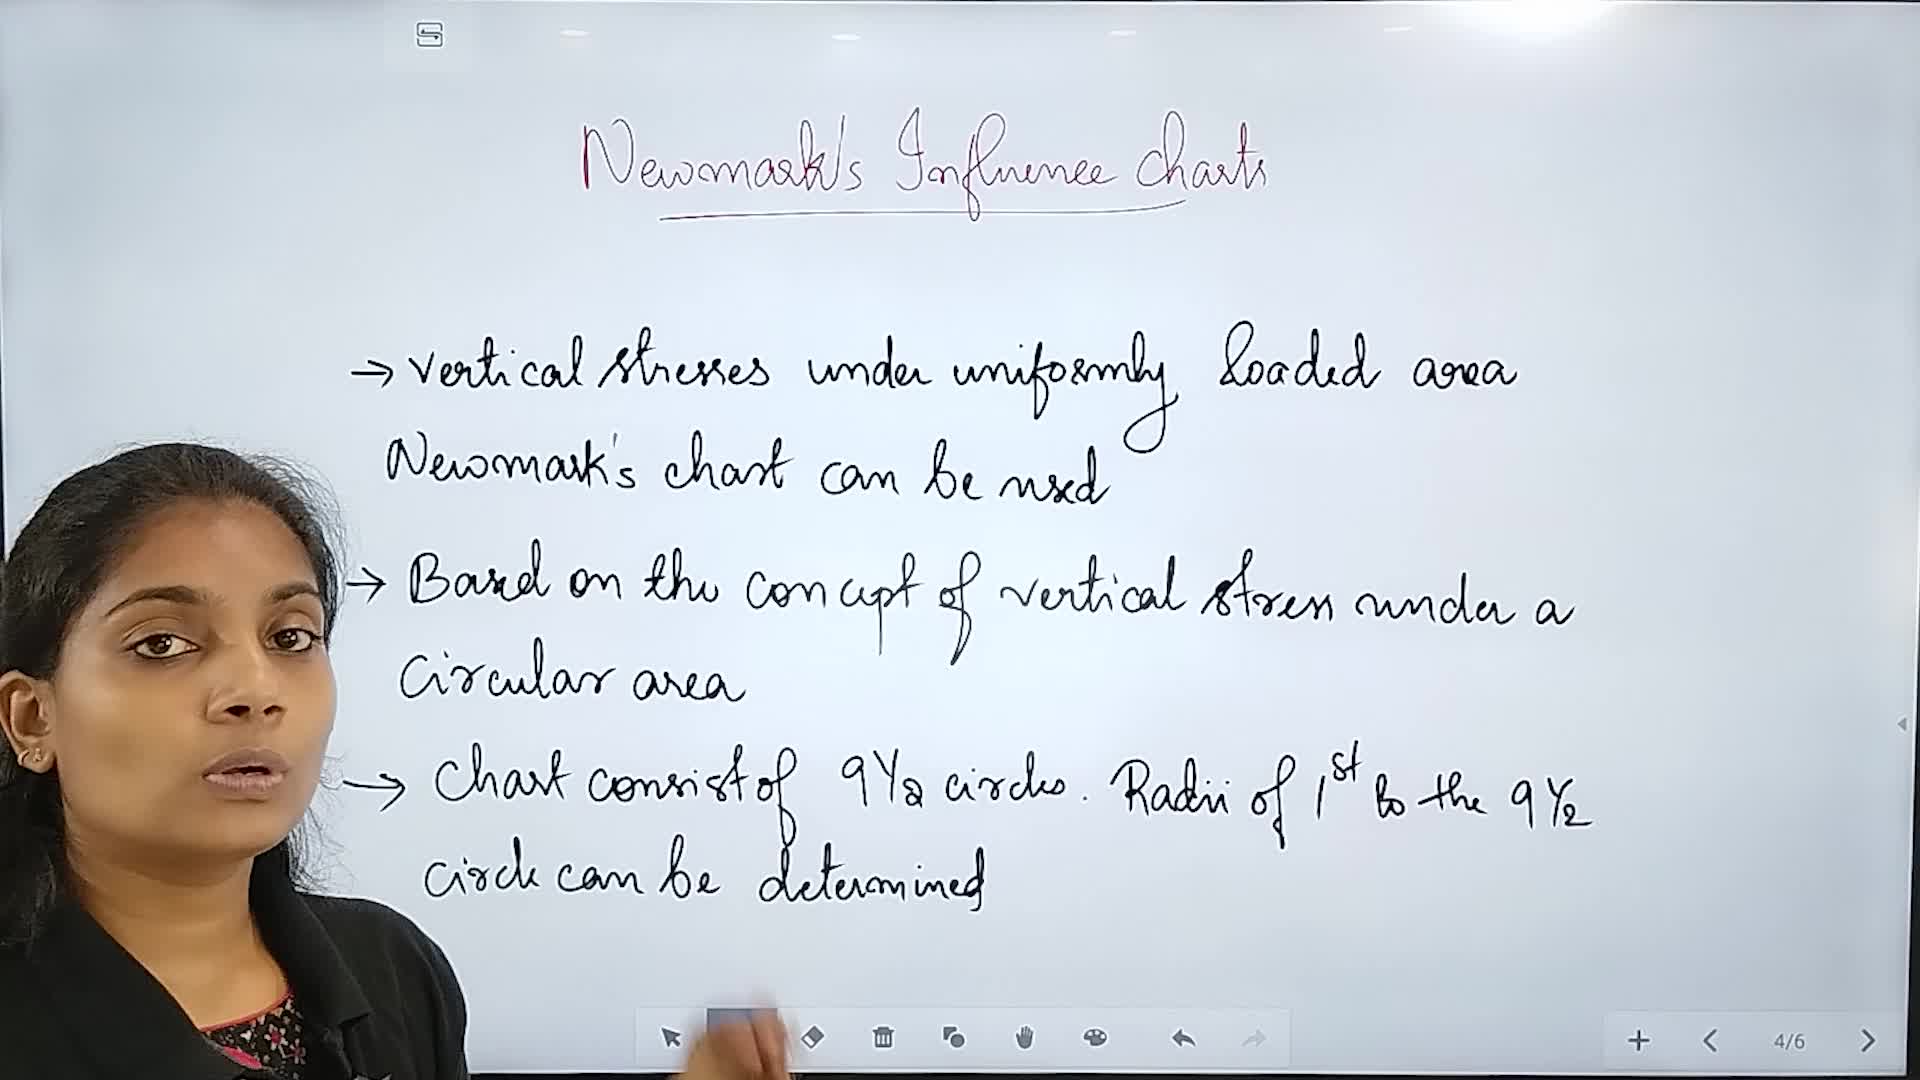 Newmark's Influence Charts
→ Vertical stresses under uniformly loaded area
Newmark's chart can be used
→ Based on the concept of vertical stress under a
circular area
→ Chart consist of 9 1/2 circles. Radii of 1st to the 9 1/2
circle can be determined
4/6